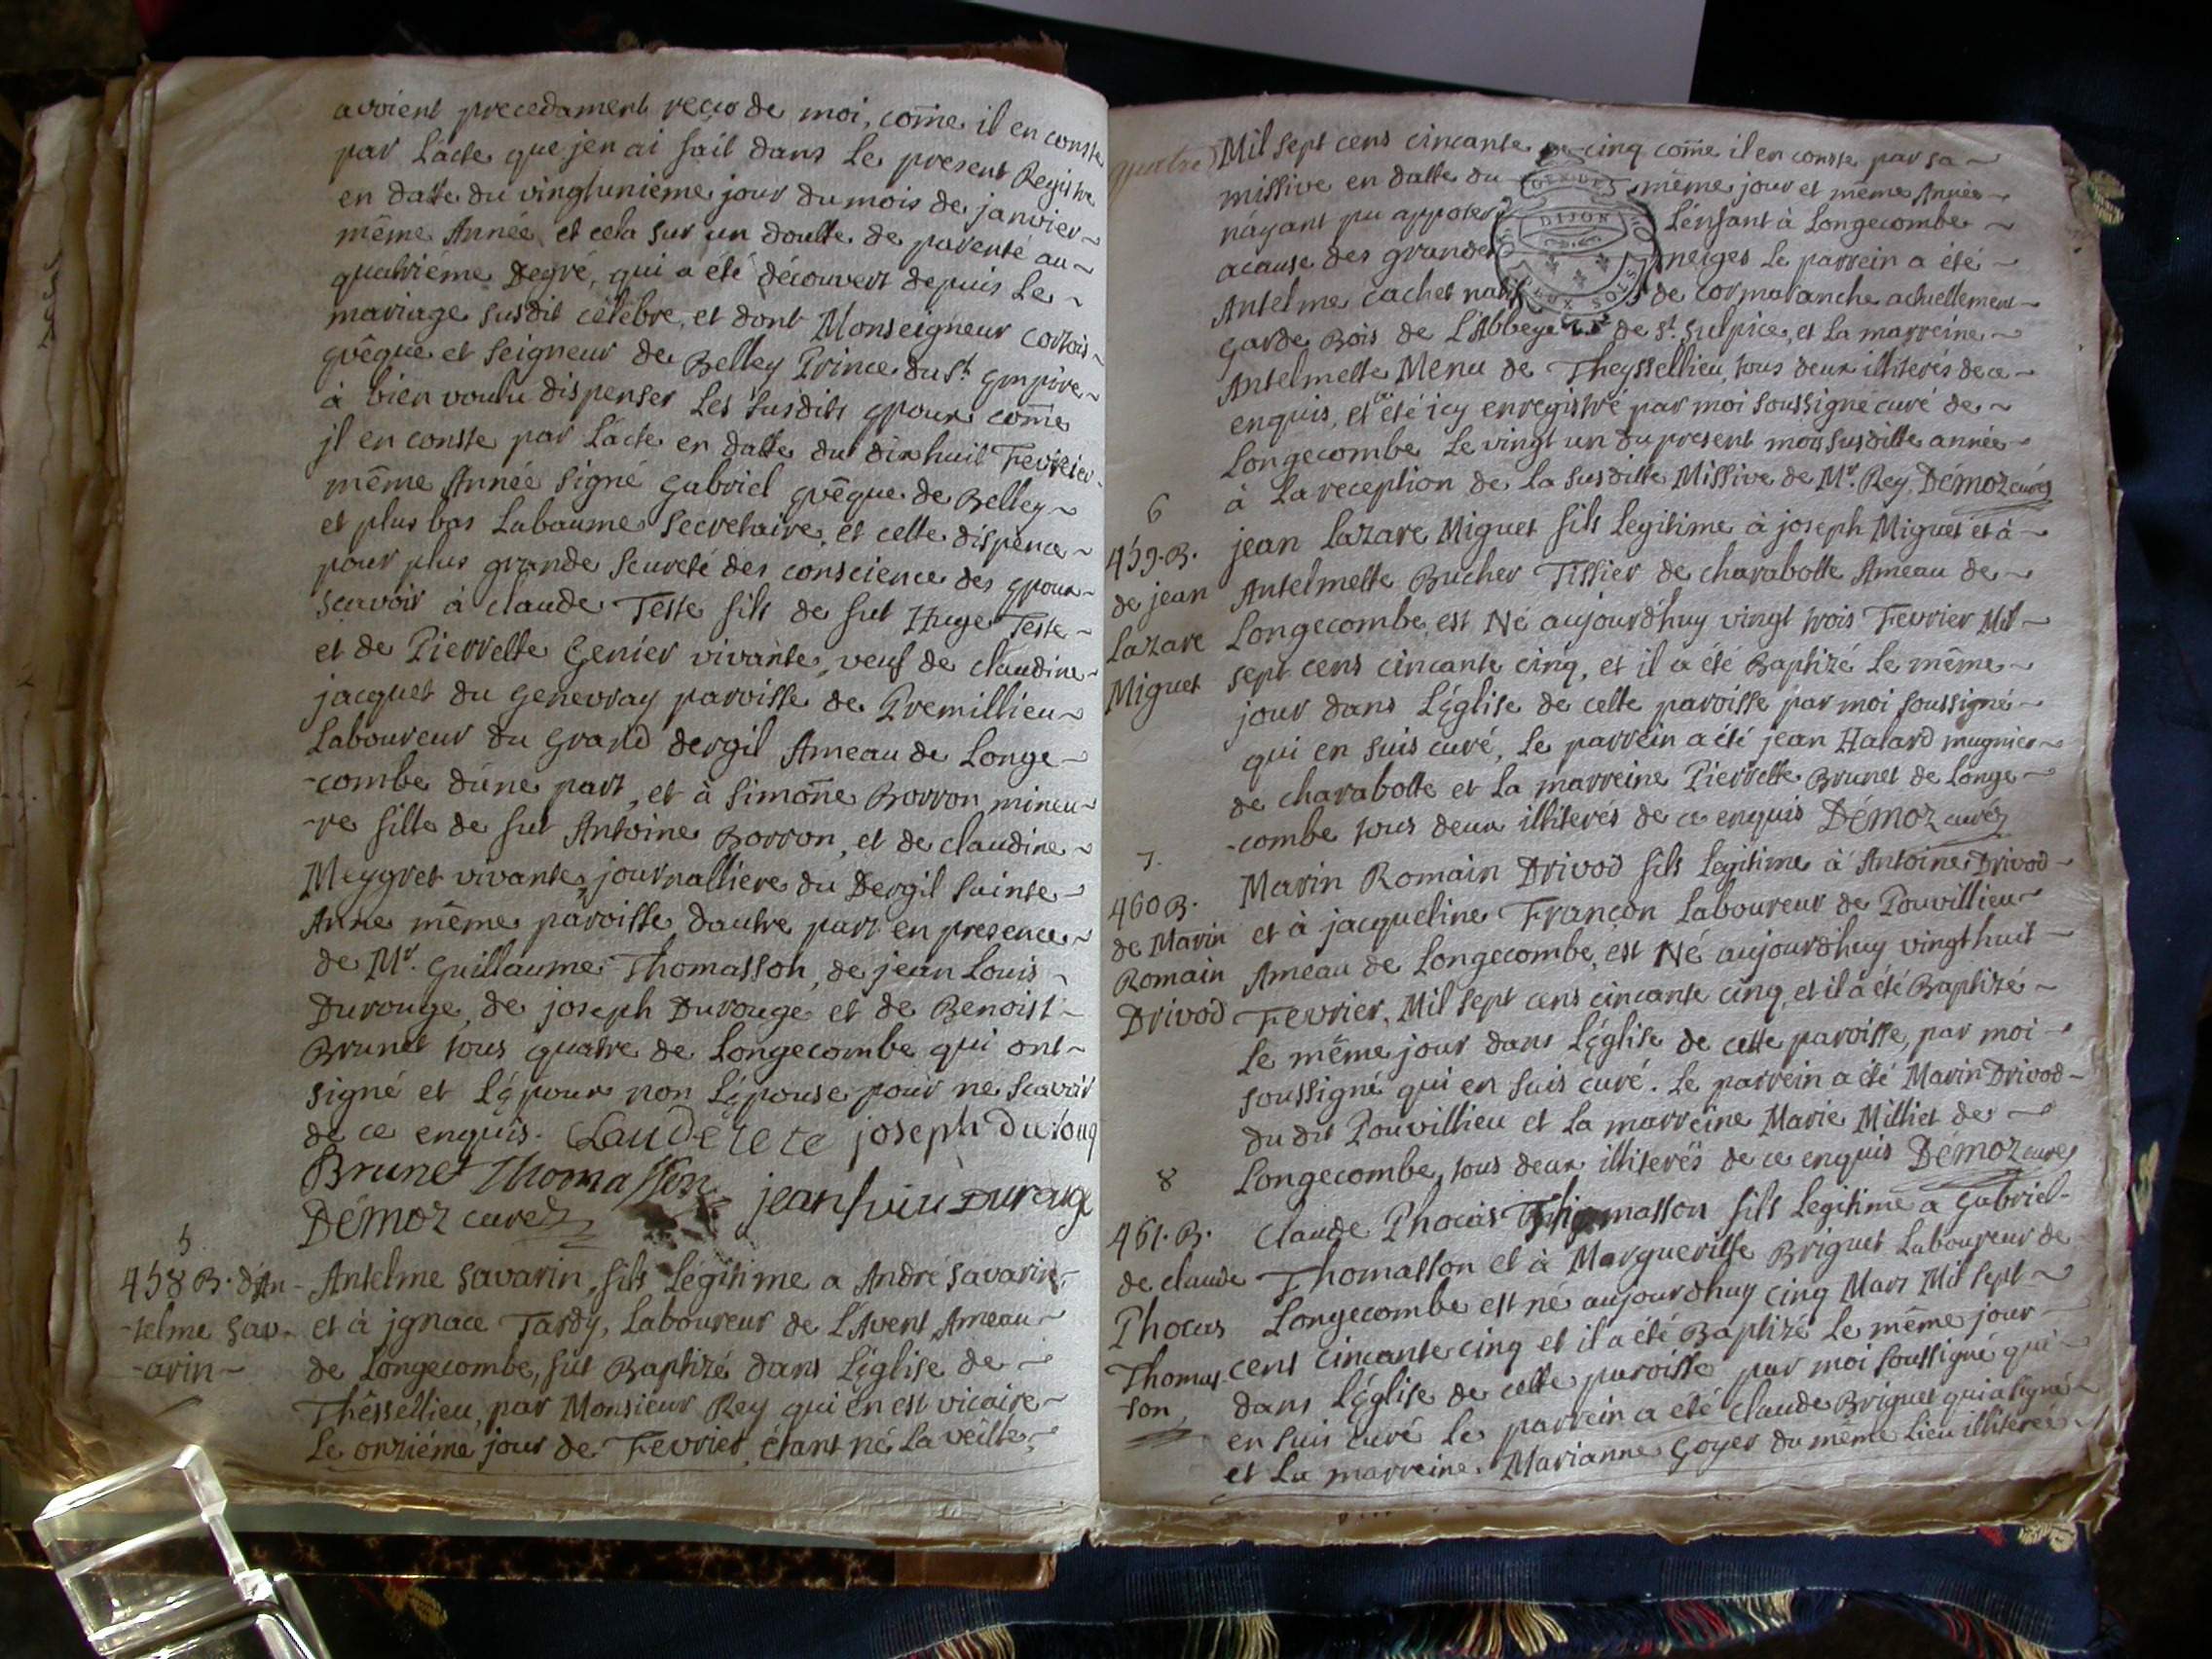 avoient precedament reçû de moi, come il en conste
par L'acte que jen ai fait dans Le present Registre
en datte du vingtunieme jour du mois de janvier
même Année et cela sur un doutte de parenté au
quatriéme Degré, qui a été découvert depuis Le
mariage susdit célébre, et dont Monseigneur Cortois
Evêque et Seigneur de Belley Prince du St Empire
à bien voulu dispenser Les susdits Epoux come
jl en conste par L'acte en datte du dix huit Fevrier
même Année signé Gabriel Evêque de Belley
et plus bas Labaume Secretaire, et cette dispence
pour plus grande seureté des conscience des Epoux
scavoir à claude Teste fils de fut Huge Teste
et de Pierrette Genier vivante, veuf de claudine
jacquet du Genevray paroisse de Premillieu
Laboureur du grand dergil Ameau de Longe-
-combe d'une part, et à Simone Borron mineu-
-re fille de fut Antoine Borron, et de claudine
Meygret vivante, journalliere du Dergil Sainte
Anne même paroisse d'autre part en presence
de Mr. Guillaume Thomasson, de jean Louis
Durouge, de joseph Durouge et de Benoist
Brunet tous quatre de Longecombe qui ont
signé et L'Epoux non L'Epouse pour ne scavoir
de ce enquis. Claude tete joseph du roug
Brunet Thomasson
jean Louis Durouge
Démoz curez
5
458 B. d'An-
-telme Sav-
-arin
Antelme Savarin, fils Légitime a André Savarin,
et à jgnace Tardy, Laboureur de L'Avent Ameau
de Longecombe, fut Baptizé dans L'Eglise de
Théssellieu, par Monsieur Rey qui en est vicaire
Le onziéme jour de Fevrier, étant né La veille,
quatre
Mil sept cens cincante cinq come il en conste par sa
missive en datte du même jour et même Année
n'ayant pu apporter L'enfant à Longecombe
acause des grandes neiges Le parrein a été
Antelme Cachet natif de cormaranche actuellement
garde Bois de L'Abbeye de St. Sulpice, et La marreine
Antelmette Menu de Theyssellieu, tous deux illiterés de ce
enquis, et été icy enregistré par moi soussigné curé de
Longecombe Le vingt un du present mois susditte année
à La reception de La susditte Missive de Mr. Rey. Démoz curez
DIJON
DEUX SOLS
6
459. B.
de jean
Lazare
Miguet
jean Lazare Miguet fils Legitime à joseph Miguet et à
Antelmette Bucher Tissier de charabotte Ameau de
Longecombe, est Né aujourd'huy vingt trois Fevrier Mil
sept cens cincante cinq, et il a été Baptizé Le même
jour dans L'Eglise de cette paroisse par moi soussigné
qui en suis curé, Le parrein a été jean Hatard mugnier
de charabotte et La marreine Pierrette Brunet de Longe-
-combe tous deux illiterés de ce enquis Démoz curéz
7.
460 B.
de Marin
Romain
Drivod
Marin Romain Drivod fils Legitime à Antoine Drivod
et à jacqueline Françon Laboureur de Pouvillieu
Ameau de Longecombe, est Né aujourd'huy vingt huit
Fevrier, Mil sept cens cincante cinq, et il a été Baptizé
Le même jour dans L'Eglise de cette paroisse, par moi
soussigné qui en suis curé. Le parrein a été Marin Drivod
du dit Pouvillieu et La marreine Marie Milliet de
Longecombe, tous deux illiterés de ce enquis Démoz curez
8
461. B.
de claude
Phocas
Thomas-
son
Claude Phocas Thomasson fils Legitime a Gabriel
Thomasson et à Margueritte Briguet Laboureur de
Longecombe est né aujourdhuy cinq Mars Mil sept
cent cincante cinq et il a été Baptizé Le même jour
dans L'Eglise de cette paroisse par moi soussigné qui
en suis curé Le parrein a été claude Briguet qui a signé
et La marreine Marianne Goyer du même Lieu illiterée